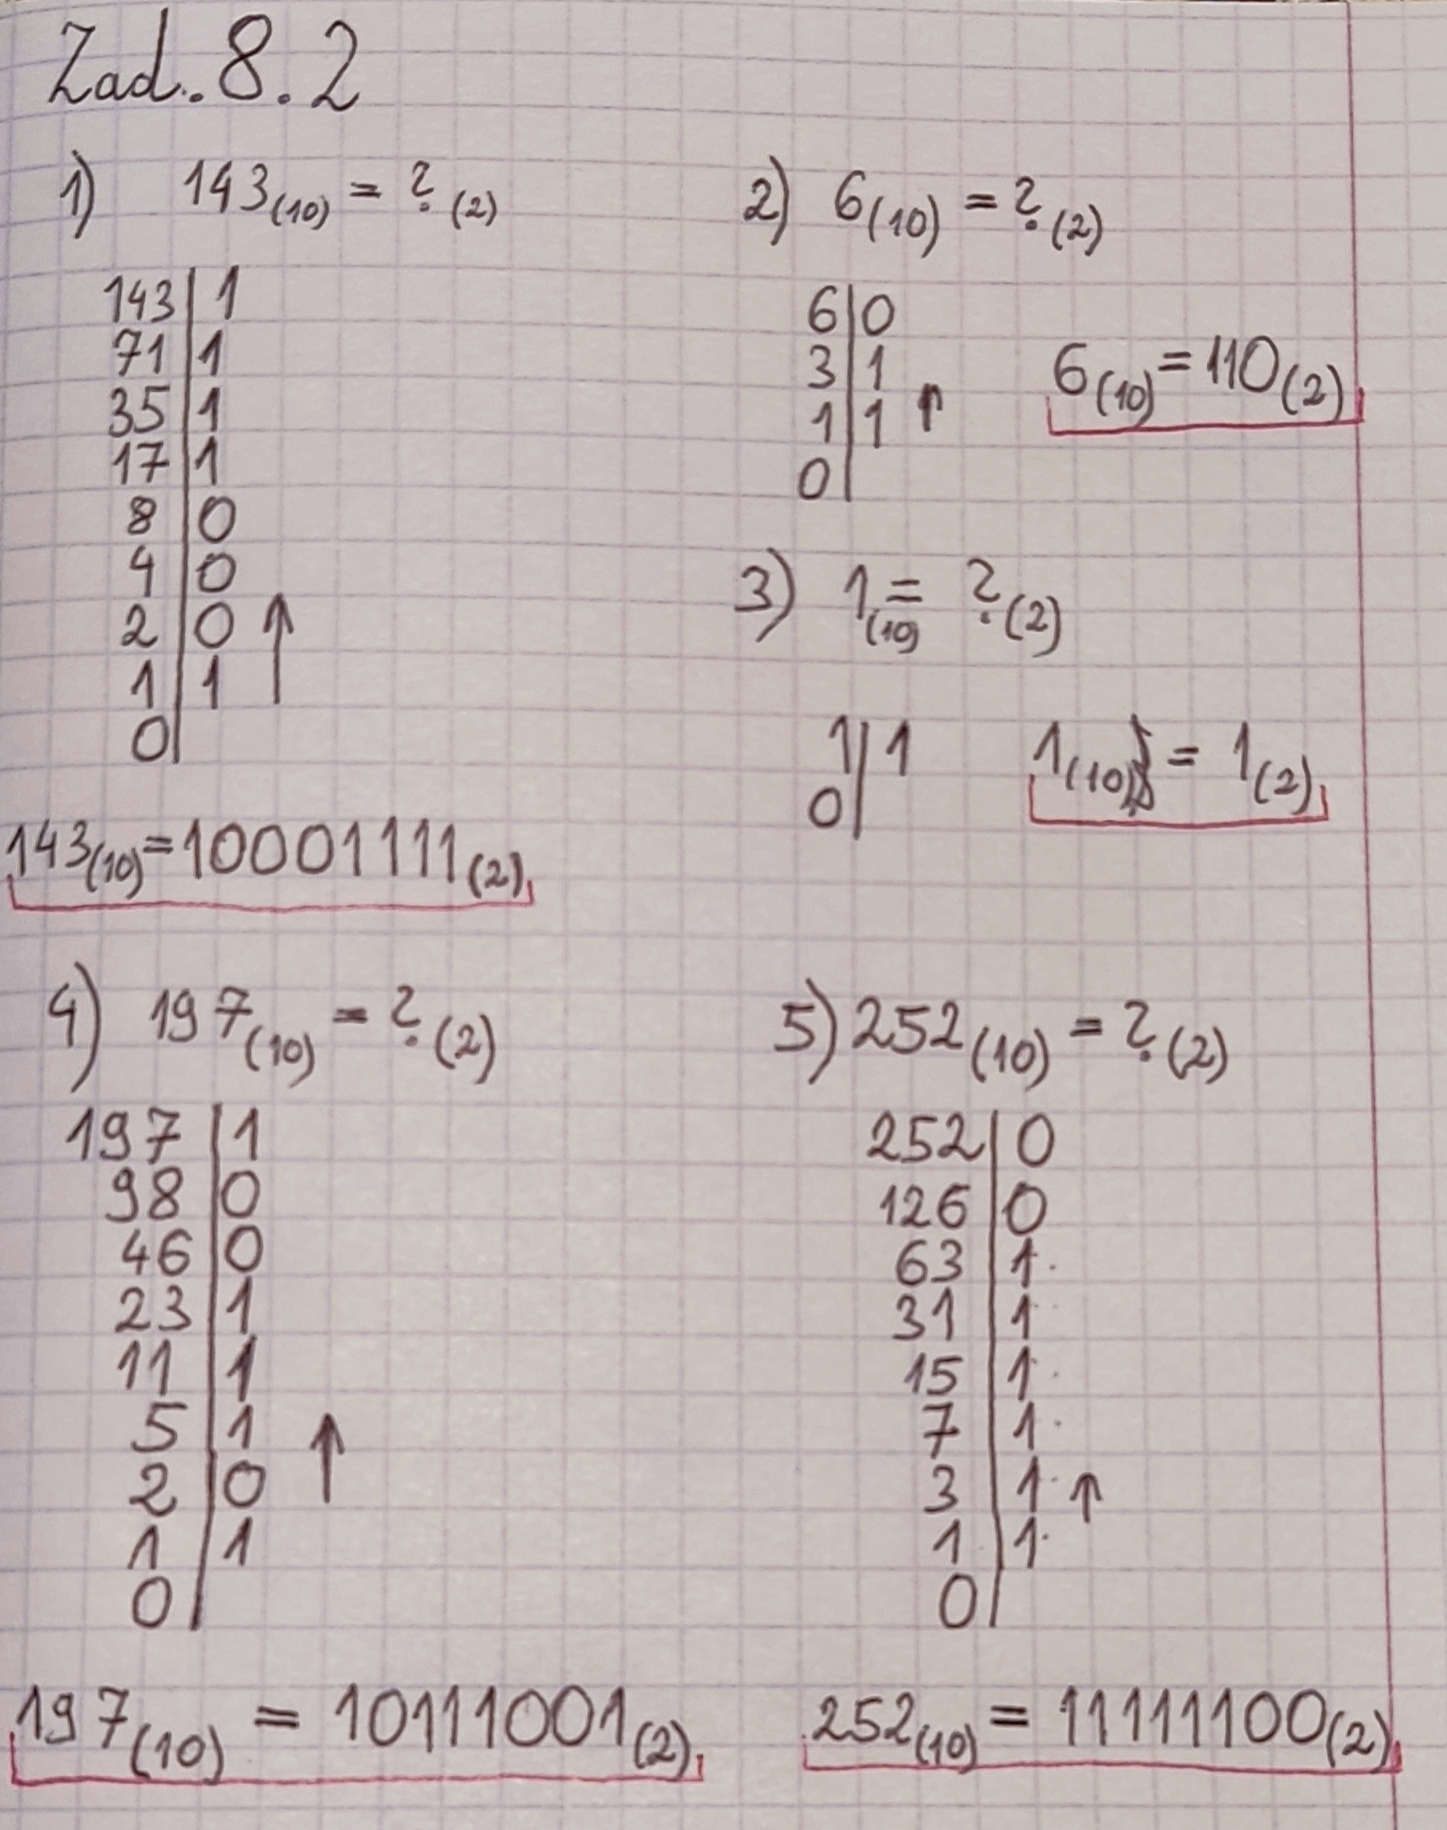 Zad. 8.2
1) 143(10) = ?(2)
143|1
71|1
35|1
17|1
8|0
4|0
2|0 ↑
1|1
0|
143(10)=10001111(2)
2) 6(10) = ?(2)
6|0
3|1
1|1 ↑
0|
6(10)=110(2)
3) 1(10) = ?(2)
1|1
0|
1(10) = 1(2)
4) 197(10) = ?(2)
197|1
98|0
46|0
23|1
11|1
5|1 ↑
2|0
1|1
0|
197(10) = 10111001(2)
5) 252(10) = ?(2)
252|0
126|0
63|1
31|1
15|1
7|1
3|1 ↑
1|1
0|
252(10) = 11111100(2)